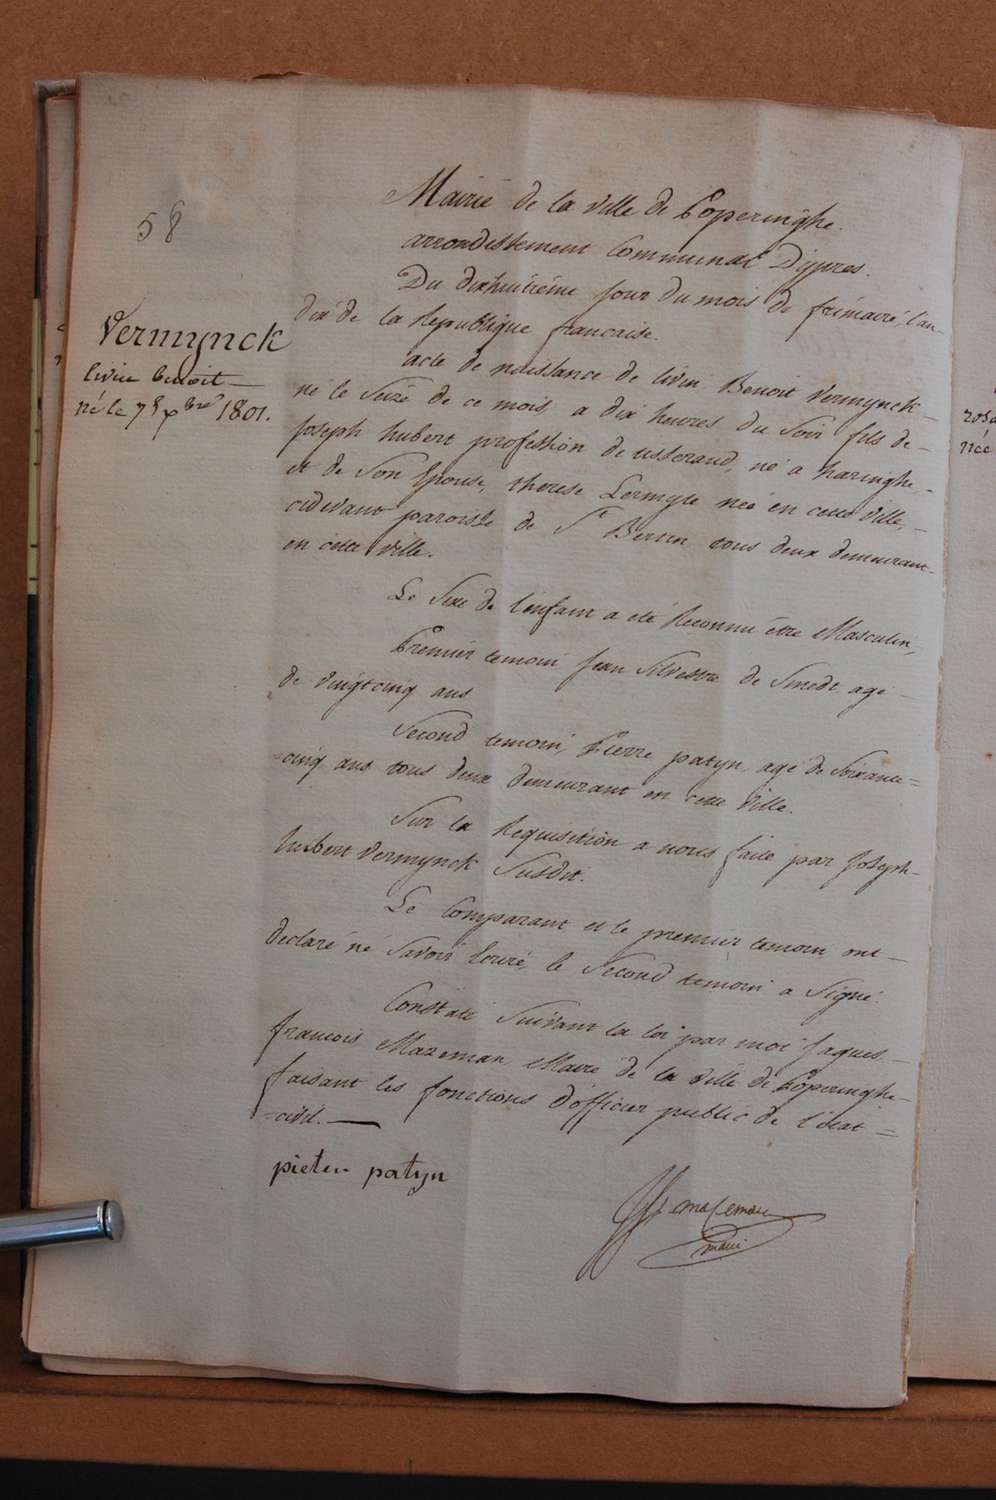 58
Vermynck
livin benoit
né le 7 Xbre 1801.
Mairié de la ville de Poperinghe.
arrondissement Communal D'ypres.
Du dixhuitiéme jour du mois de frimaire, l'an
dix de la Republique francaise.
acte de naissance de livin Benoit Vermynck
né le Seize de ce mois, a dix heures du Soir fils de
Joseph hubert profession de tisserand, né a haringhe,
et de Son Epouse, therese Lermyte née en cette Ville,
cidevant paroisse de St Bertin tous deux demeurant
en cette Ville.
Le Sexe de l'enfant a eté Reconnu étre Masculin,
Premier temoin Jean Silvestre de Smedt agé
de Vingtcinq ans
Second temoin, Pierre patyn, agé de Soixante=
=cinq ans tous deux demeurant en cette Ville.
Sur la Requisition a nous faite par Joseph
hubert Vermynck Susdit.
Le Comparant et le premier temoin ont
declaré né Savoir Ecriré, le Second temoin a Signé.
Constaté Suivant la loi par moi Jaques
francois Mazeman Maire de la Ville de Poperinghe
faisant les fonctions d'officier public de l'état=
=civil.
pieter patyn
mazeman
maire
rosa
née